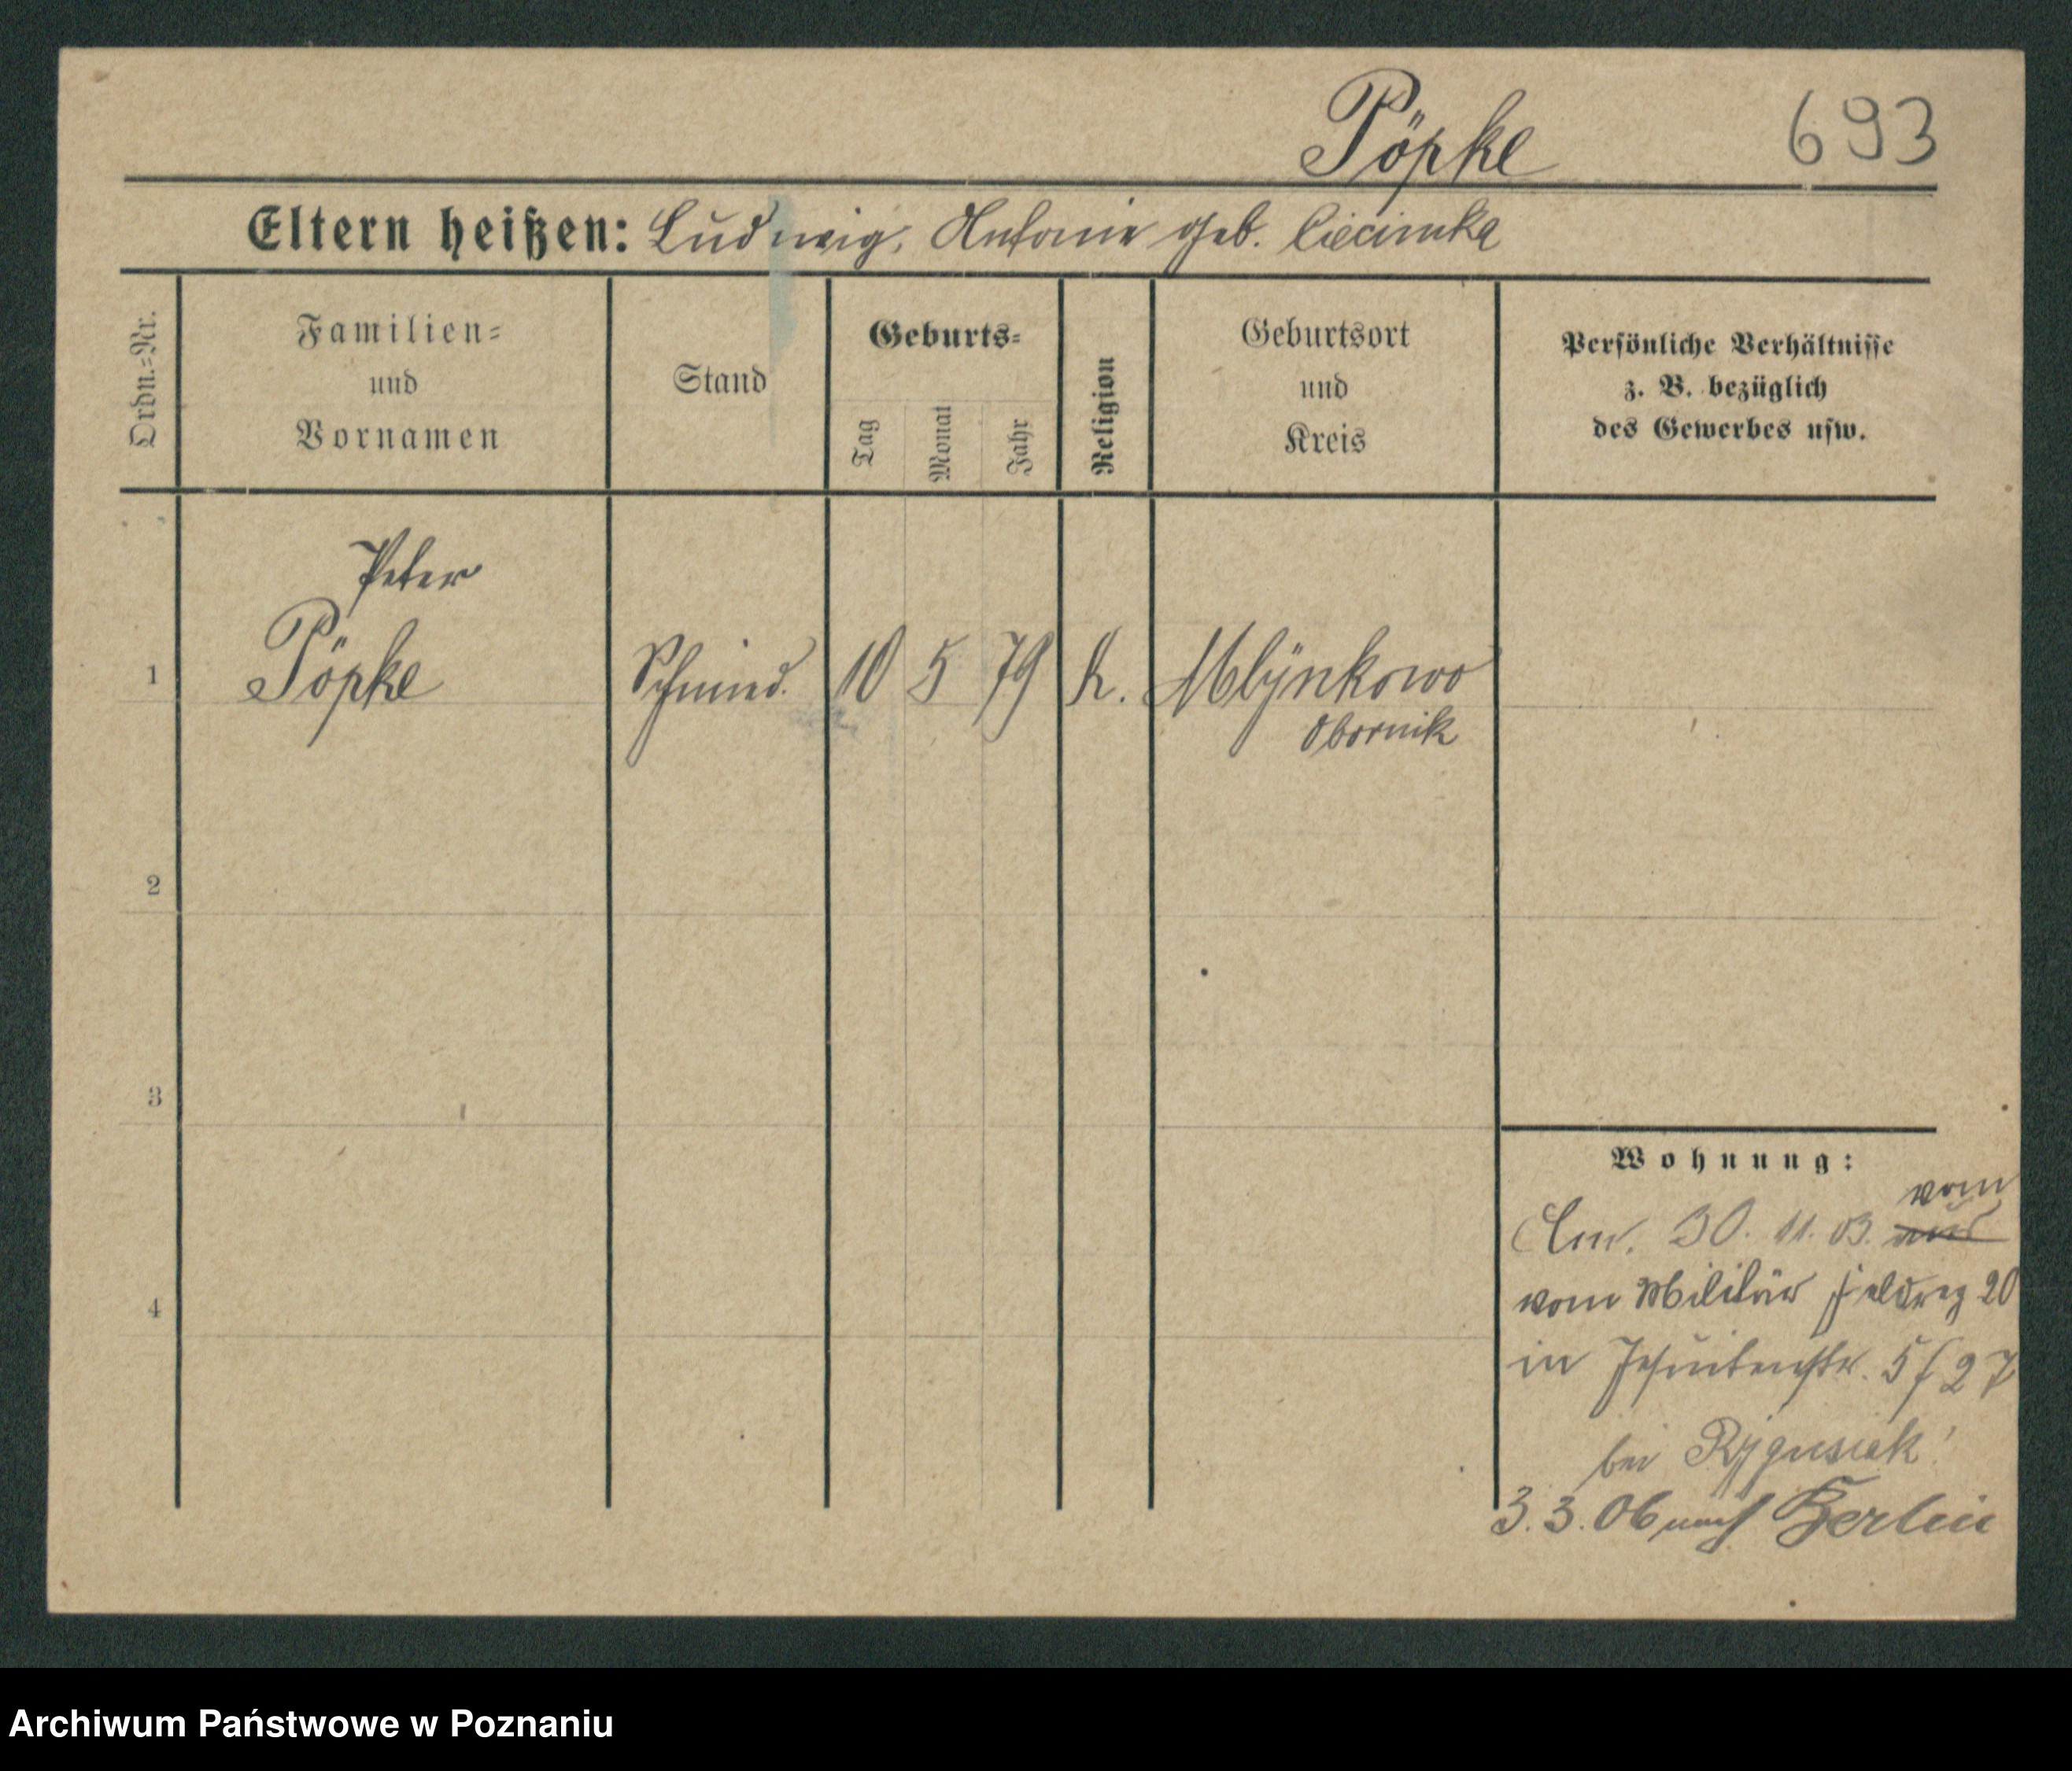 Pöpke 693
Eltern heißen: Ludwig, Antonie geb. Ciecimka
Ordn.=Nr.
Familien=
und
Vornamen
Stand
Geburts=
Tag
Monat
Jahr
Religion
Geburtsort
und
Kreis
Persönliche Verhältnisse
z. B. bezüglich
des Gewerbes usw.
Peter
1 Pöpke Schmied. 10 5 79 k. Mlynkowo
Obornik
2
3
4
Wohnung:
vom
30. 11. 03. aus
vom Militär Feldreg 20
in Jesuitenstr. 5 / 27
bei Rygusiak
3. 3. 06 nach Berlin
Archiwum Państwowe w Poznaniu